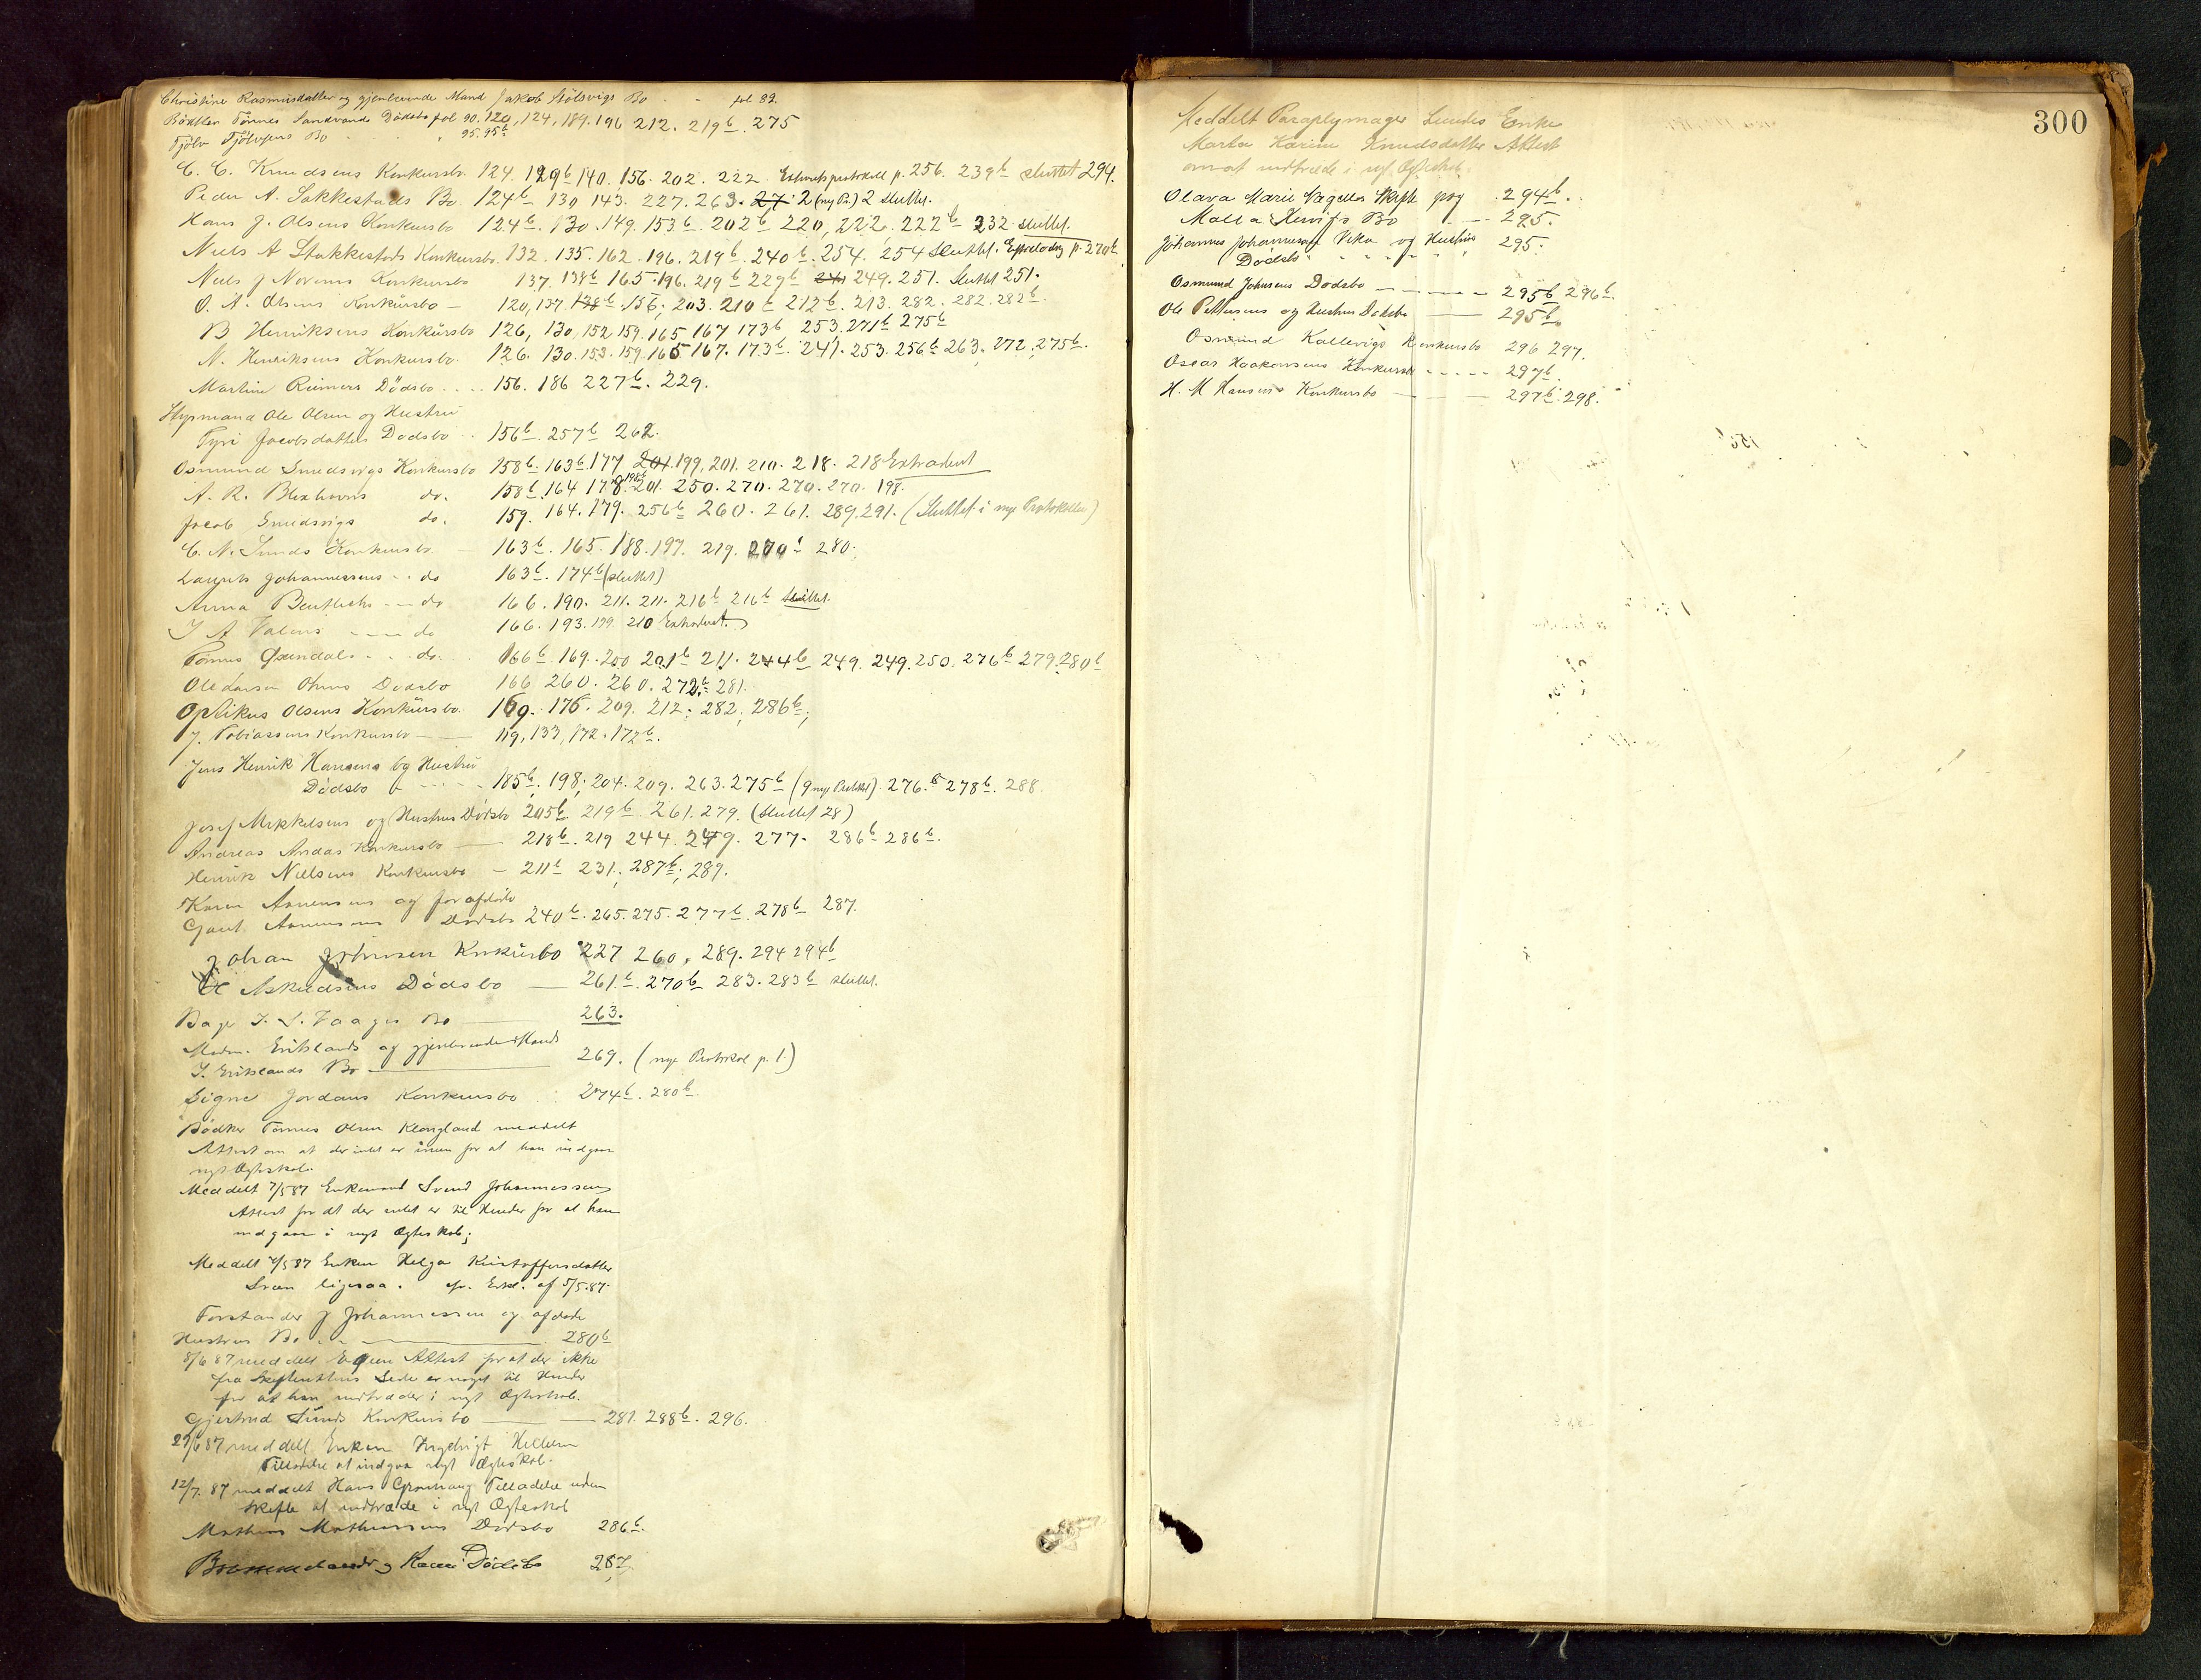 Christine Rasmusdatter og gjenlevende Mand Jakob Stölsvigs Bo - - fol 89.
Bödker Tönnes Sandvands Dödsbo fol 90. 120, 124, 189. 196 212. 219b. 275
Tjölv Tjölvsens Bo 95. 95b
C. C. Knudsens Konkursbo. 124. 129b 140. 156. 202. 222. p. 256. 239b sluttet 294.
Peder A. Sakkestads Bo. 124b 130 143. 227. 263. 27 2 (ny Pr.) 2 sluttet.
Hans J. Olsens Konkursbo 124b. 130. 149. 153b. 202b 220, 222. 222b 232 sluttet.
Niels A Stakkestads Konkursbo. 132. 135. 162. 196. 219b. 240b. 254. 254 Sluttet. p. 270b.
Niels J Konkursbo 137. 138b 165. 196. 219b 229b 241 249. 251. Sluttet 251.
O. A. Olsens Konkursbo - 120, 137 138b 156; 203. 210b 212b. 213. 282. 282. 282b.
B Henriksens Konkursbo 126, 130, 152 159. 165 167 173b 253. 271b 275b
N. Henriksens Konkursbo. 126. 130. 153. 159. 165 167. 173b. 241. 253. 256b 263. 272. 275b.
Martine Reimers Dödsbo .... 156. 186 227b. 229.
Styrmand Ole Olsen og Hustru
Tyri Jacobsdatters Dodsbo .. 156b. 257b 262.
Osmund Smedsvigs Konkursbo 158b. 163b. 177 201. 199, 201. 210. 218. 218 Extraderet
A. R. do. 158b. 164 178. 198b 201. 250. 270. 270. 270. 198.
Jacob Smedsvigs do. 159. 164. 179. 256b 260. 261. 289. 291. (Sluttet i nye Protokollen)
C. N. Sunds Konkursbo. - 163b. 165. 188. 197. 219. 270! 280.
Laurits Johannessens - - do 163b. 174b (sluttet)
Anna - - do 166. 190. 211. 211. 216b 216b sluttet.
J A - - - do 166. 193. 199. 210 Extraderet.
Tönnes - - do. 166b. 169. 200 201b 211. 244b 249. 249. 250, 276b 279. 280b
Ole Larsen Dodsbo 166 260. 260. 272b. 281.
Optikus Olsens Konkursbo. 169. 176. 209. 212; 282, 286b,
J. Tobiassens Konkursbo - - 119, 133, 172. 172b.
Jens Henrik Hansens og Hustru
Dödsbo - - - - 185b. 198; 204. 209. 263. 275b (9 ny Protokol). 276.b 278b. 288.
Josef Mikkelsens og Hustrus Dödsbo 205b. 219b. 261. 279. (Sluttet 28)
Andreas Andas Konkursbo - 218b. 219 244. 249. 277. 286b 286b.
Henrik Nielsens Konkursbo - 211b 231., 287b; 289.
Karen Asmensens og forafdöde
Asmensens Dödsbo 240b. 265. 275. 277b. 278b 287.
Johan Johnsen Konkursbo 227 260, 289. 294 294b
Askildsens Dödsbo - 261.b. 270b 283. 283b sluttet.
Bager Bo - 263.
Madm. Erikslands og gjenlevende Mands
Erikslands Bo - 269. (nye Protokol p. 1.)
Signe Jordans Konkursbo . . 274b. 280b.
Bödker Tönnes Olsen meddelt
Attest om at der intet er iveien for at han indgaar
nyt Ægteskab.
Meddelt 7/5 87 Enkemand Svend Johannessen
Attest for at der intet er til Hinder for at han
indgaar i nyt Ægteskab;
Meddelt 7/5 87 Enken Helga Kristoffersdatter
ligesaa. cfr. Erkl. af 5/5. 87.
Forstander J Johannessen og afdöde
Hustrus Bo - - 280b
8/6 87 meddelt Attest for at der ikke
fra Skifterettens Side er noget til Hinder
for at han indtræder i nyt Ægteskab.
Gjertrud Sunds Konkursbo - - 281. 288b. 296.
29/6 87 meddelt Enken
Tilladelse at indgaa nyt Ægteskab.
12/7. 87 meddelt Hans Tilladelse uden
Skifte at indtræde i nyt Ægteskab
Mathias Mathiassens Dödsbo 286b.
Dödsbo 287.
300
Meddelt Paraplymager Lundes Enke
Marta Karine Knudsdatter Attest
om at indtræde i nyt Ægteskab.
Olava Marie Skifte pag . 294b..
Bo - - 295.
Johannes Johannesen Vika og Hustrus 295.
Dodsbo
Osmund Johnsens Dodsbo - - - - 295b 296b.
Ole Pettersens og Hustrus Dödsbo - 295b
Osmund Kallevigs Konkursbo 296 297.
Oscar Haakonsens Konkursbo - - - - - 297b.
H. M Hansens Konkursbo - - 297b. 298.